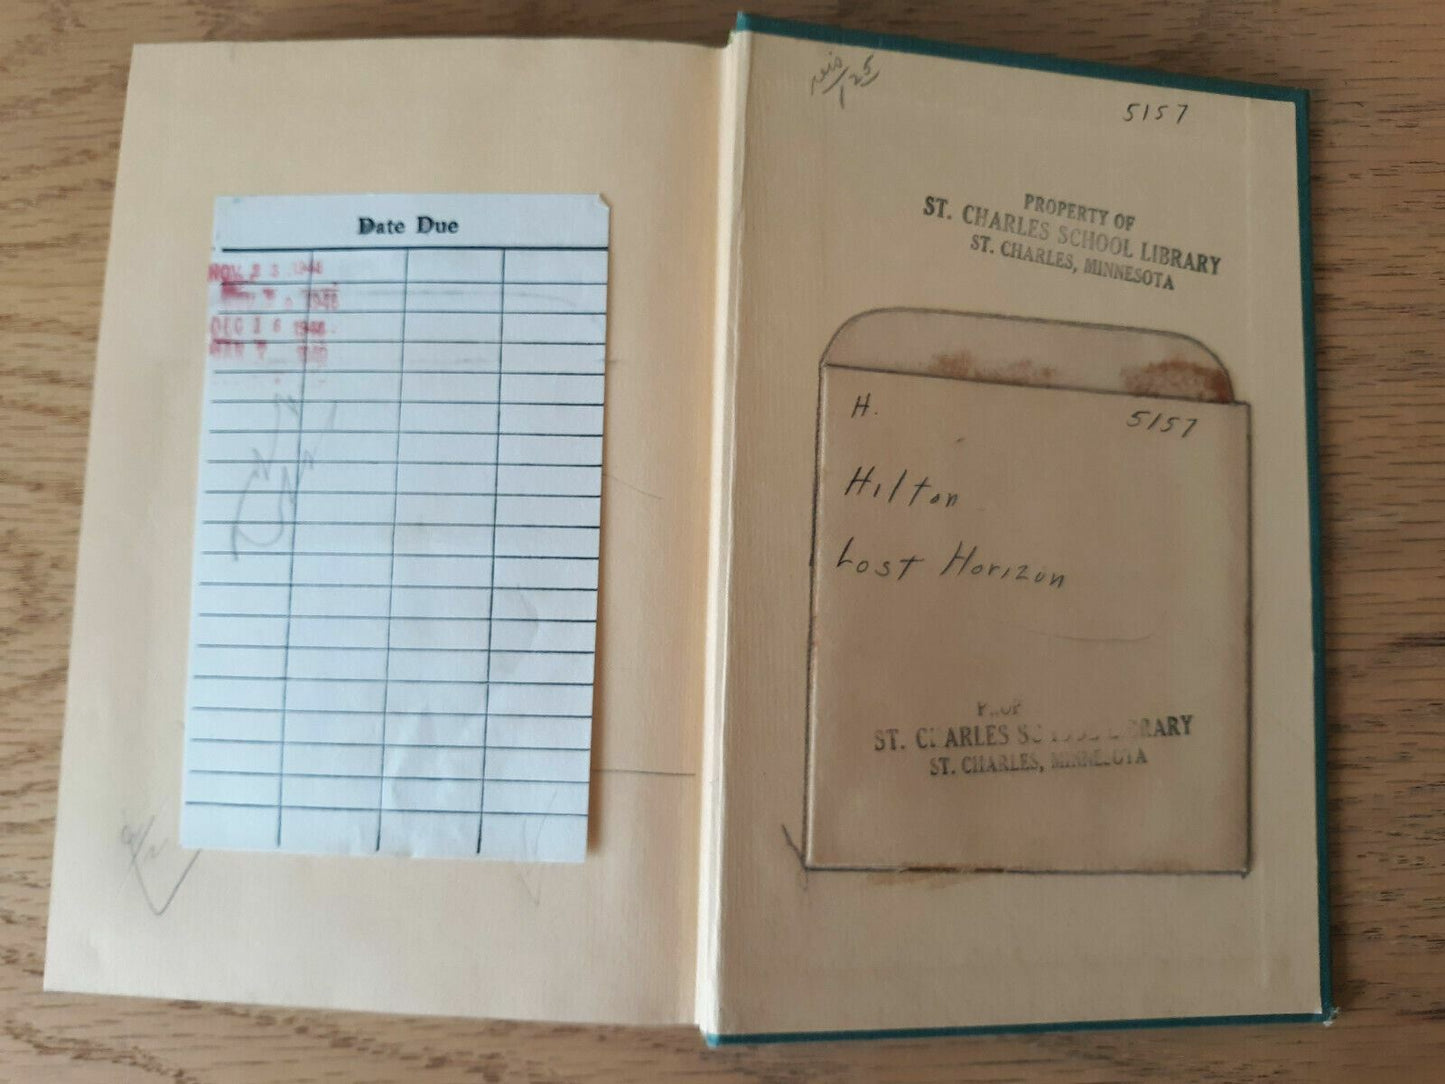 Date Due
NOV 2 3 1948
DEC 1 6 1948
5157
PROPERTY OF
ST. CHARLES SCHOOL LIBRARY
ST. CHARLES, MINNESOTA
H.
5157
Hilton
Lost Horizon
ST. CHARLES LIBRARY
ST. CHARLES, MINNESOTA